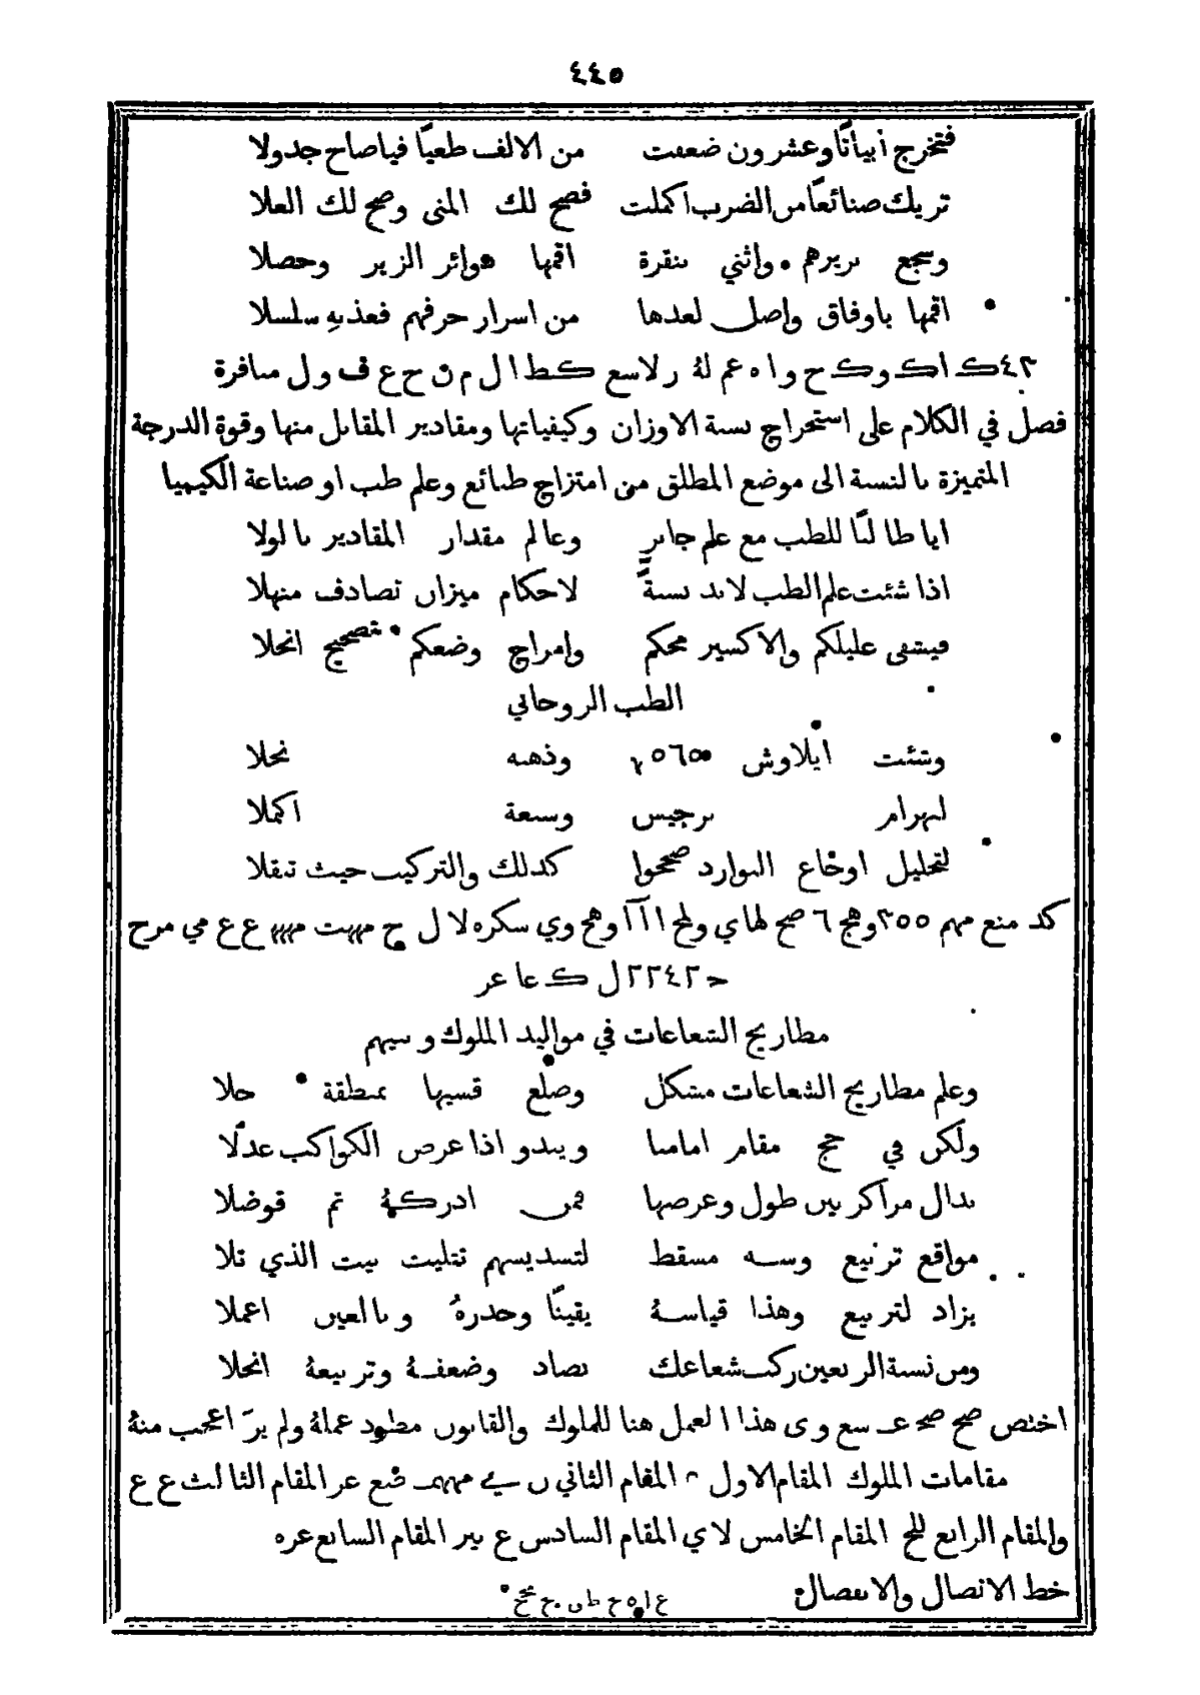 ٤٤٥
فتخرج أبياتًا وعشرون ضعفت من الالف طعيًا فياصاح جدولا
تريك صنائعًا من الضرب اكملت فصح لك المنى وصح لك العلا
وسجع بزيرهم واثني بنقرة اقمها دوائر الزير وحصلا
اقمها باوفاق واصل لعدها من اسرار حرفهم فعذبه سلسلا
٤٣ ك ا ك و ك ح و ا ه عم له ر لا سع كط ا ل م ن ح ع ف و ل منافرة
فصل في الكلام على استخراج نسبة الاوزان وكيفياتها ومقادير المقابل منها وقوة الدرجة
المتميزة بالنسبة الى موضع المطلق من امتزاج طبائع وعلم طب او صناعة الكيميا
ايا طالبًا للطب مع علم جابر وعالم مقدار المقادير بالولا
اذا شئت علم الطب لابد نسبةً لاحكام ميزان تصادف منهلا
فيشفى عليلكم والاكسير محكم وامزاج وضعكم تصحيح انجلا
الطب الروحاني
وشئت ايلاوش وذهنه نحلا
لبهرام برجيس وسبعة اكملا
لتحليل اوجاع البوارد صححوا كذلك والتركيب حيث تنقلا
كد منع مهم ٣٥٥ وهج ٦ صح لهاي ولمح ا آ آ وهج وي سكره لا ل ح
ل ك عا عر
مطاريح الشعاعات في مواليد الملوك وبنيهم
وعلم مطاريح الشعاعات مشكل وضلع قسيها بمنطقة جلا
ولكن في حج مقام امامنا ويبدو اذا عرض الكواكب عدلا
بدال مراكز بين طول وعرضها فمن ادركة تم قوضلا
مواقع تربيع وسه مسقط لتسديسهم تثليث بيت الذي تلا
يزاد لتربيع وهذا قياسة يقينًا وجدرهُ وبالعين اعملا
ومن نسبة الربعين ركب شعاعك بصاد وضعفة وتربيعة انجلا
اختص صح صح عـ سع وى هذا العمل هنا للملوك والقانون مطرد عملة ولم يرَ اعجب منة
مقامات الملوك المقام الاول المقام الثاني المقام الثالث ع ع
والمقام الرابع للح المقام الخامس لاي المقام السادس ع بير المقام السابع عره
خط الاتصال والانفصال